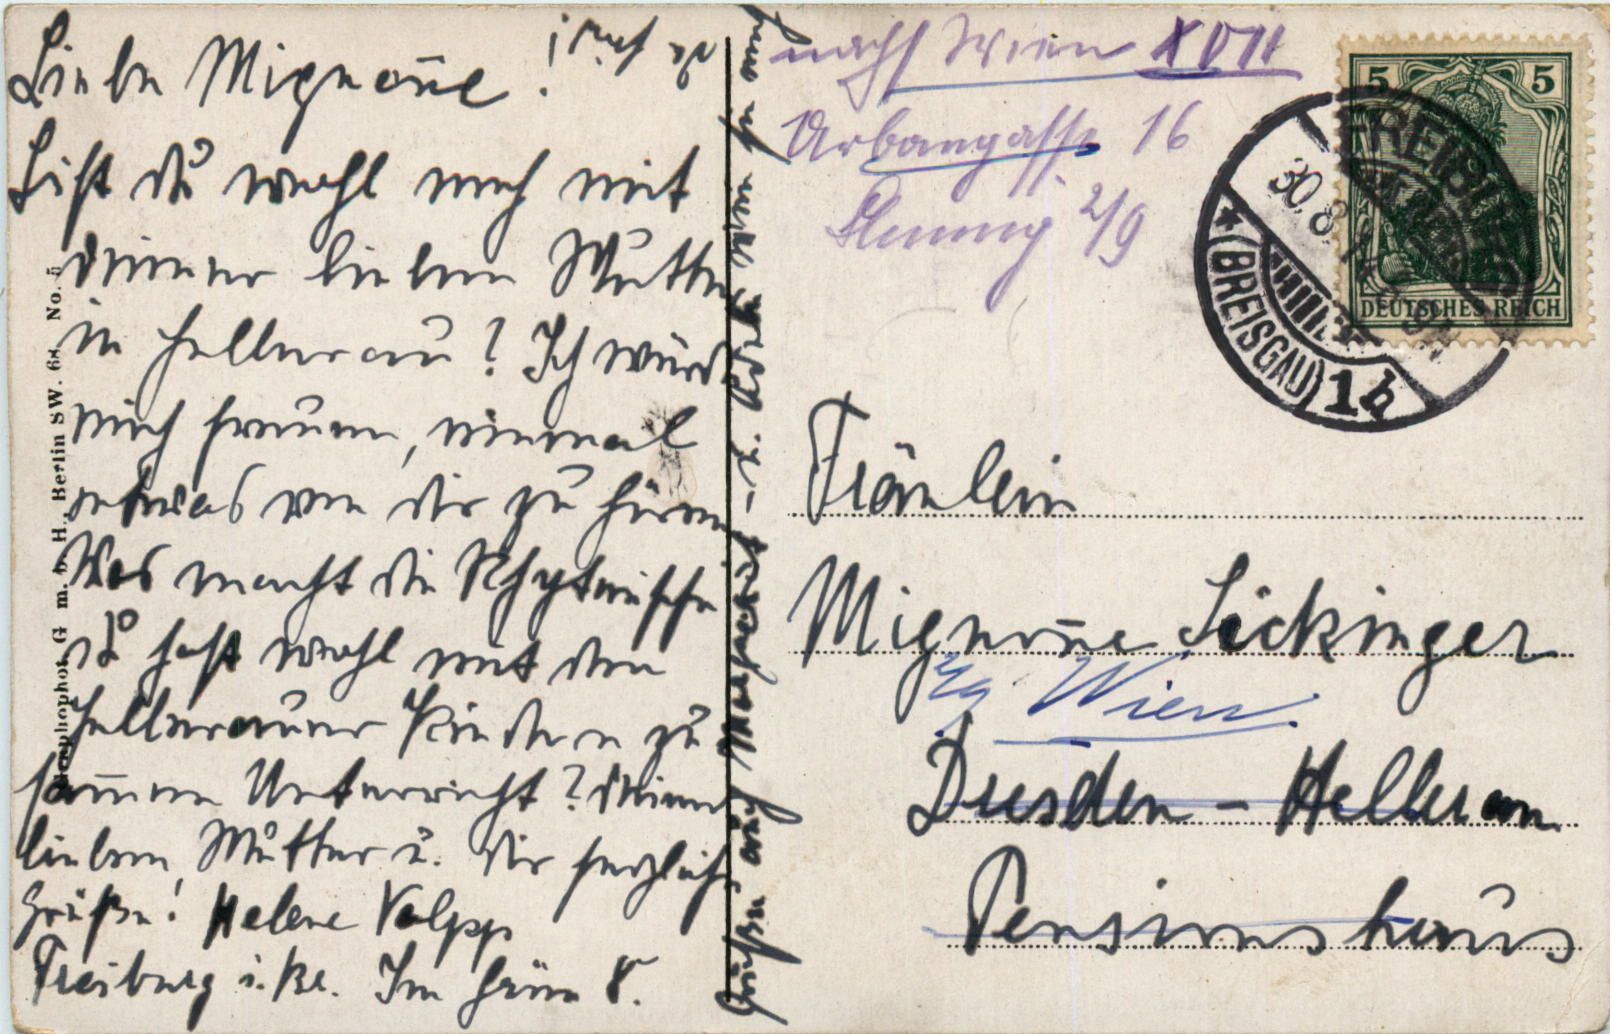 Liebe Mignonne!
Bist du wohl noch mit
deiner lieben Mutter
in Hellerau? Ich würde
mich freuen, einmal
etwas von dir zu hören.
Was macht die Rhythmische
du hast wohl mit den
Hellerauer Kindern zu
sammen Unterricht? Deiner
lieben Mutter u. dir herzliche
Grüße! Helene Volpp
Freiburg i. Br. Im Grün 8.
da sein!
nach Wien XVII
Urbangasse 16
2/9
5 5
DEUTSCHES REICH
FREIBURG
30.8.
* (BREISGAU) 1h
Fräulein
Mignonne Sickinger
Wien
Dresden - Hellerau
Pensionshaus
G. m. b. H., Berlin SW. 68 No. 5